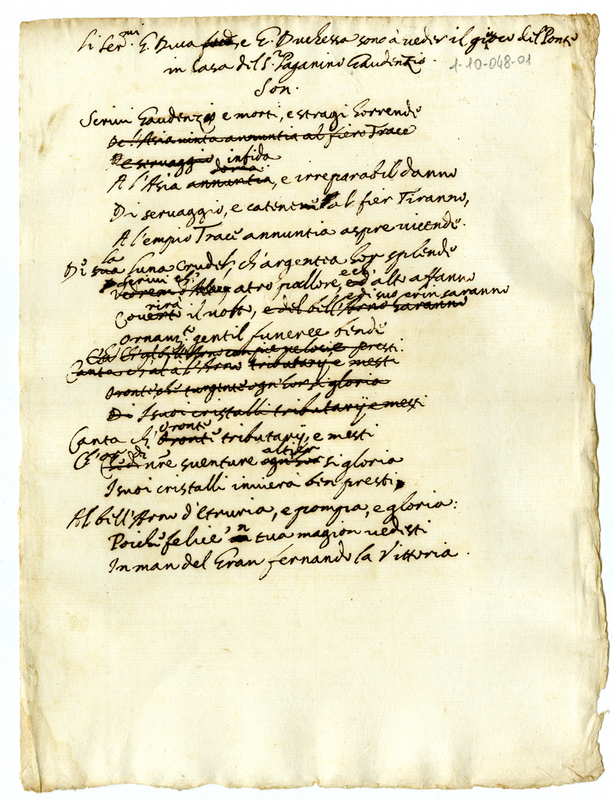 li Ser.mi G. Duca, e G. Duchessa sono à veder il gioco del Ponte
in casa del S.r Paganino Gaudentio.
1-10-048-01
Son.
Scrivi Gaudenzio e morti, e stragi horrende
De l'Asia vinta annuntia al fiero Trace
infida
A l'Asia annuntia, e irreparabil danno
Di servaggio, e catene al fier Tiranno,
A l'empio Trace annuntia aspre vicende.
la
Di sua luna crudel, ch'argentea hor splende
scrivi ch'
atro pallore, ed alto affanno
rirà
Coverto il volto, e del bell'Arno saranno
gentil funeree bende
Canta tributarij e mesti
Di I suoi cristalli tributarij e mesti
Oronte
Canta ch'Oronte tributarij, e mesti
altier
sventure ogn'hor si gloria
I suoi cristalli invierà ben presti,
Al bell'Arno d'Etruria, e pompa, e gloria:
Poiche felice 'n tua magion vedesti
In man del Gran fernando la Vittoria.